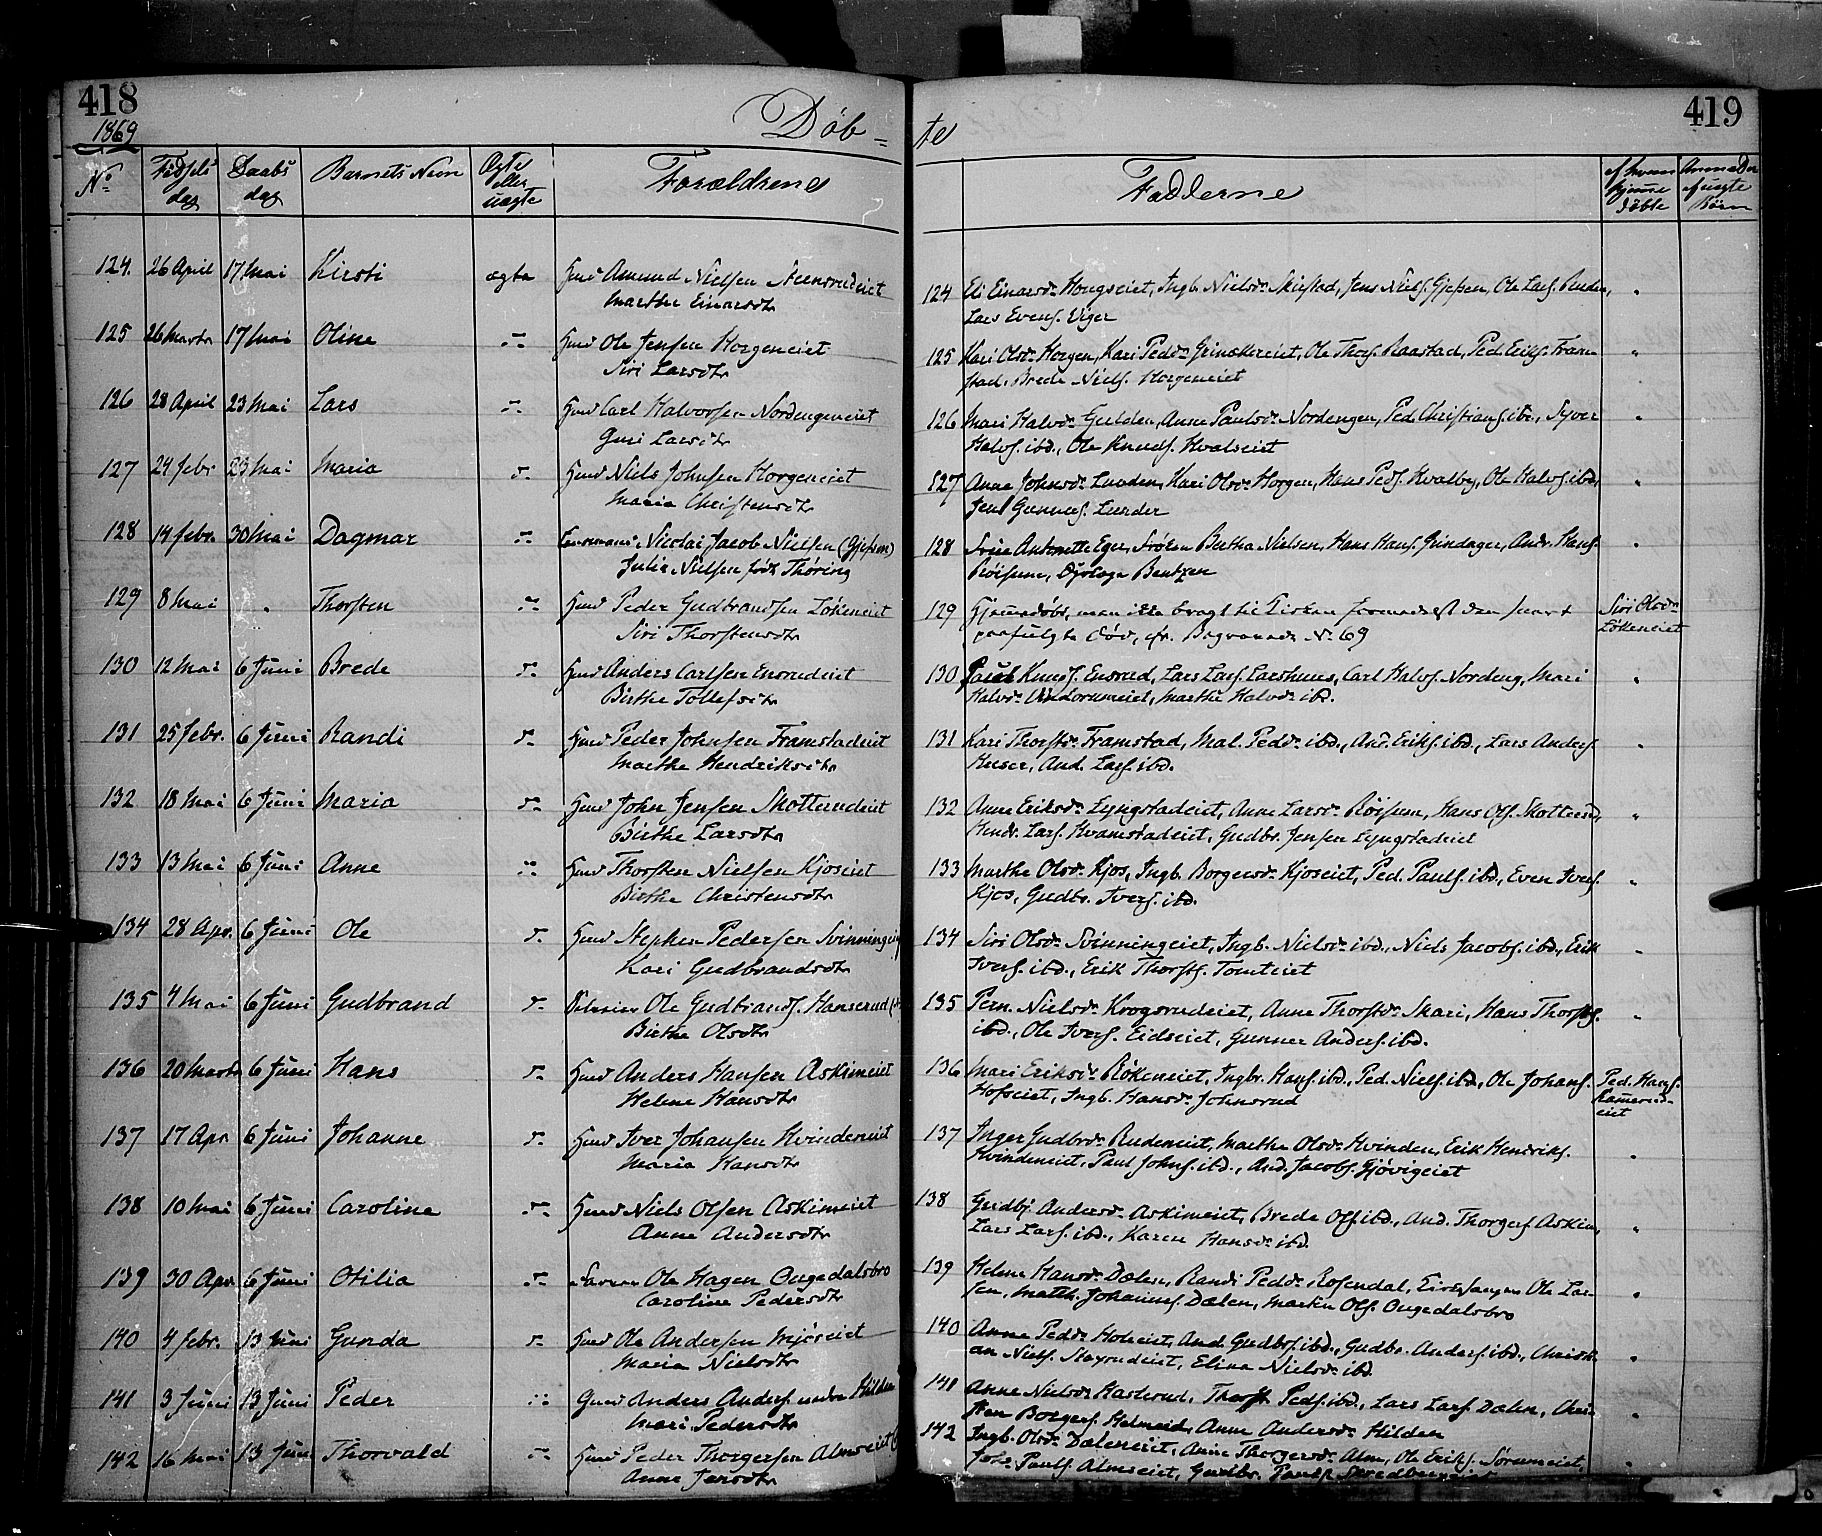 418
1869
Døb-
No
Fødsels dag
Daabs dag
Barnets Navn
Ægte eller uægte
Forældrene
124. 26 April 17 Mai Kirsti ægte Hmd Amund Nielsen Steensrudeiet
Marthe Einarsdtr
125 26 Marts 17 Mai Oline Hmd Ole Jensen Horgeneiet
Siri Larsdtr
126 28 April 23 Mai Lars Hmd Carl Halvorsen Nordengeneiet
Guri Larsdtr
127 24 febr 23 Mai Maria Hmd Niels Johnsen Horgeneiet
Maria Christensdtr
128 14 febr. 30 Mai Dagmar Nicolai Jacob Nielsen (Gjefsen)
Julie Nielsen født Thøring
129 8 Mai " Thorsten Hmd Peder Gudbrandsen Løkeneiet
Siri Thorstensdtr
130 12 Mai 6 Juni Brede Hmd Anders Carlsen Ensrudeiet
Birthe Tollefsdtr
131 25 febr. 6 Juni Randi Hmd Peder Johnsen Framstadeiet
Marthe Hendriksdtr
132 18 Mai 6 Juni Maria Hmd John Jensen Skotterudeiet
Birthe Larsdtr
133 13 Mai 6 Juni Anne Hmd Thorsten Nielsen Kjoseiet
Birthe Christensdtr
134 28 Apr. 6 Juni Ole Hmd Stephen Pedersen
Kari Gudbrandsdtr
135 4 Mai 6 Juni Gudbrand Ole Gudbrands. Hanserud
Birthe Olsdtr
136 20 Marts 6 Juni Hans Hmd Anders Hansen Askimeiet
Helene Hansdtr
137 17 Apr 6 Juni Johanne Hmd Iver Johansen Hvindeneiet
Maria Hansdtr
138 10 Mai 6 Juni Caroline Hmd Niels Olsen Askimeiet
Anne Andersdtr
139 30 Apr 6 Juni Otilia Ole Hagen Ougedalsbro
Caroline Pedersdtr
140 4 febr. 13 Juni Gunda Hmd Ole Andersen Mjøseiet
Maria Nielsdtr
141 3 Juni 13 Juni Peder Gmd Anders Anders. nedre Hilden
Mari Pedersdtr
142 16 Mai 13 Juni Thorvald Hmd Peder Thorgersen Almseiet
Anne Jensdtr
te
419
Fadderne
af hvem hjemme døbte
Anm. af uægte Børn
124 Eli Einarsdr Hougseiet, Ingb. Nielsdr Skiestad, Jens Niels. Gjefsen, Ole Lars. Ruden,
Lars Evens. Viger
125 Kari Olsdr Horgen, Kari Pedr Grinakereiet, Ole Thors. Raastad, Ped. Eriks. Fram-
stad, Brede Niels. Horgeneiet
126 Mari Halvdr Gulden, Anne Paulsdr Nordengen, Ped. Christians. ibd., Syver
Halvs. ibd., Ole Knuds. Hvalseiet
127 Anne Johnsdr Lunden, Kari Olsdr Horgen, Hans Peds. Hvalby, Ole Halvs. ibd,
Jens Gunners. Lunder
128 Antonette Eger, Frøken Bertha Nielsen, Hans Hans. Grindager, Andr. Hans.
Røisum, Bentzen
129 Hjemmedøbt, men ikke bragt til Kirken
død, cfr. Begravede No 69
Siri Olsdr
Løkeneiet
130 Paul Knuds. Ensrud, Lars Lars. Larshuus, Carl Halvs. Nordeng, Mari
Halvdr Lindorumeiet, Marthe Halvdr ibd.
131 Kari Thorstdr Framstad, Mal. Peddr ibd., And. Eriks. ibd., Lars Anders.
And. Lars. ibd.
132 Anne Eriksdr Lyngstadeiet, Anne Larsdr Røisum, Hans Ols. Skotterud,
Hendr. Lars. Kvamstadeiet, Gudbr. Jensen Lyngstadeiet
133 Marthe Olsdr Kjos, Ingb. Borgersdr Kjoseiet, Ped. Pauls. ibd., Even Ivers.
Kjos, Gudbr. Ivers. ibd.
134 Siri Olsdr Svinningeiet, Ingb. Nielsdr ibd., Niels Jacobs. ibd., Erik
Ivers. ibd., Erik Thorsts. Tomteiet
135 Pern. Nielsdr Krogsrudeiet, Anne Thorstdr Skari, Hans Thorsts.
ibd., Ole Ivers. Eidseiet, Gunner Anders. ibd.
136 Mari Eriksdr Røkeneiet, Ingbr. Hans. ibd., Ped. Niels. ibd., Ole Johans.
Hofseiet, Ingb. Hansdr Johnsrud
Ped. Hans.
Ramerud-
eiet
137 Inger Gudbrdr Rudeneiet, Marthe Olsdr Hvinden, Erik Hendriks.
Hvindeneiet, Paul Johns. ibd., And. Jacobs. Gjøvigeiet
138 Gudbj. Andersdr Askimeiet, Brede Ols. ibd., And. Thorgers. Askim,
Lars Lars. ibd., Karen Hansdr ibd.
139 Helene Hansdr Dælen, Randi Peddr Rosendal, Kirkesanger Ole Lar-
sen, Matth. Johannes. Dælen, Martin Ols. Ougedalsbro
140 Anne Peddr Holeiet, And. Gudbrs. ibd., Gudbr. Anders. ibd., Christi-
an Niels. Eline Nielsdr ibd.
141 Anne Nielsdr Thorst. Peds. ibd., Lars Lars. Dælen, Chri-
sten Borgers. Helmeid, Anne Andersdr Hilden
142 Ingb. Olsdr Dæleneiet, Anne Thorgersdr Alm, Ole Eriks. Sørumeiet,
Johs. Pauls. Almseiet, Gudbr. Pauls.